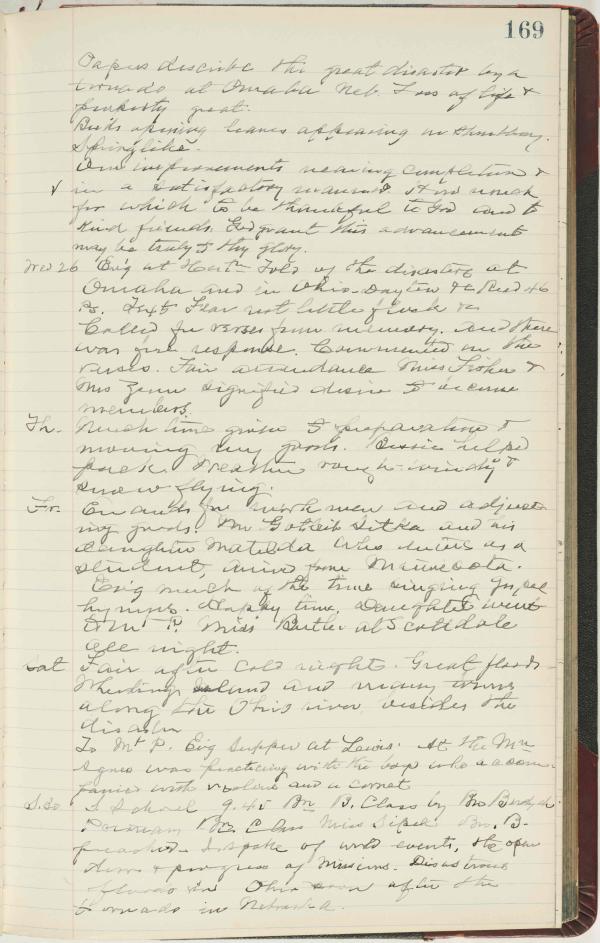 169
Papers describe the great disaster by a
tornado at Omaha Neb. Loss of life &
property great.
Buds opening leaves appearing in shrubbery.
Springlike.
Our improvements nearing completion &
in a satisfactory manner. How much
for which to be thankful to God and to
kind friends. God grant this advancement
may be truly to thy glory.
Wed 26 Ev'g at Told of the disasters at
Omaha and in Ohio - Dayton &c Read 46
Ps. Text Fear not little flock &c
Called for verses from memory. And there
was fine response. Commented on the
verses. Fair attendance Miss Fisher &
Mrs signified desire to become
members.
Th. Much time given to preparation &
moving my goods. Bessie helped
pack. Weather rough - windy &
snow flying.
Fr. Errands for workmen and adjust
my goods. Mr Gotleib Sitka and his
daughter Matilda who enters as a
student, arrive from Minnesota.
Ev'g much of the time singing Gospel
hymns. Happy time, daughter went
to Mt P. Miss Butler at Scottdale
all night.
Sat Fair after cold nights. Great floods -
Wheeling Island and many towns
along the Ohio river besides the
disaster
To Mt P. Ev'g supper at Lewis' At the
Agnes was practicing with the boys who accom-
panied with violins and a cornet
S. 30 S School 9.45 B. Class by Bro
Class Miss Bro. B.
preached - I spoke of world events, the open
doors & progress of Missions. Disastrous
floods in Ohio soon after the
tornado in Nebraska.